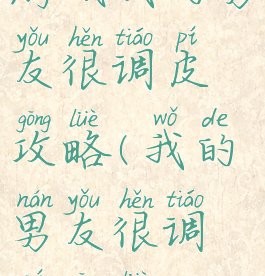 yǒu hěn tiáo pí
友很调皮
gōng lüè wǒ de
攻略(我的
nán yǒu hěn tiáo
男友很调